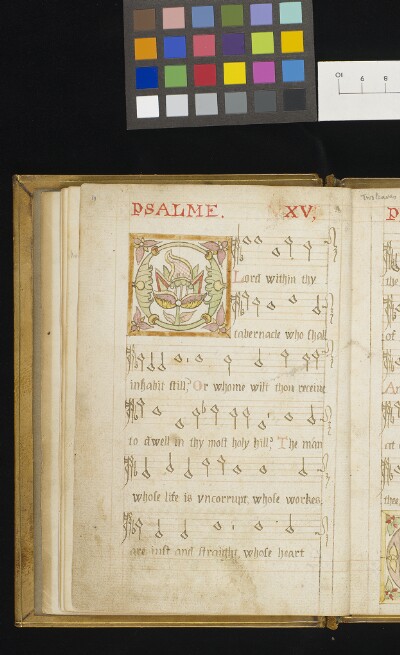 PSALME. XV.
O Lord within thy
tabernacle who shall
inhabit still? Or whome wilt thou receiue
to dwell in thy most holy hill? The man
whose life is vncorrupt, whose workes
are iust and straight, whose heart